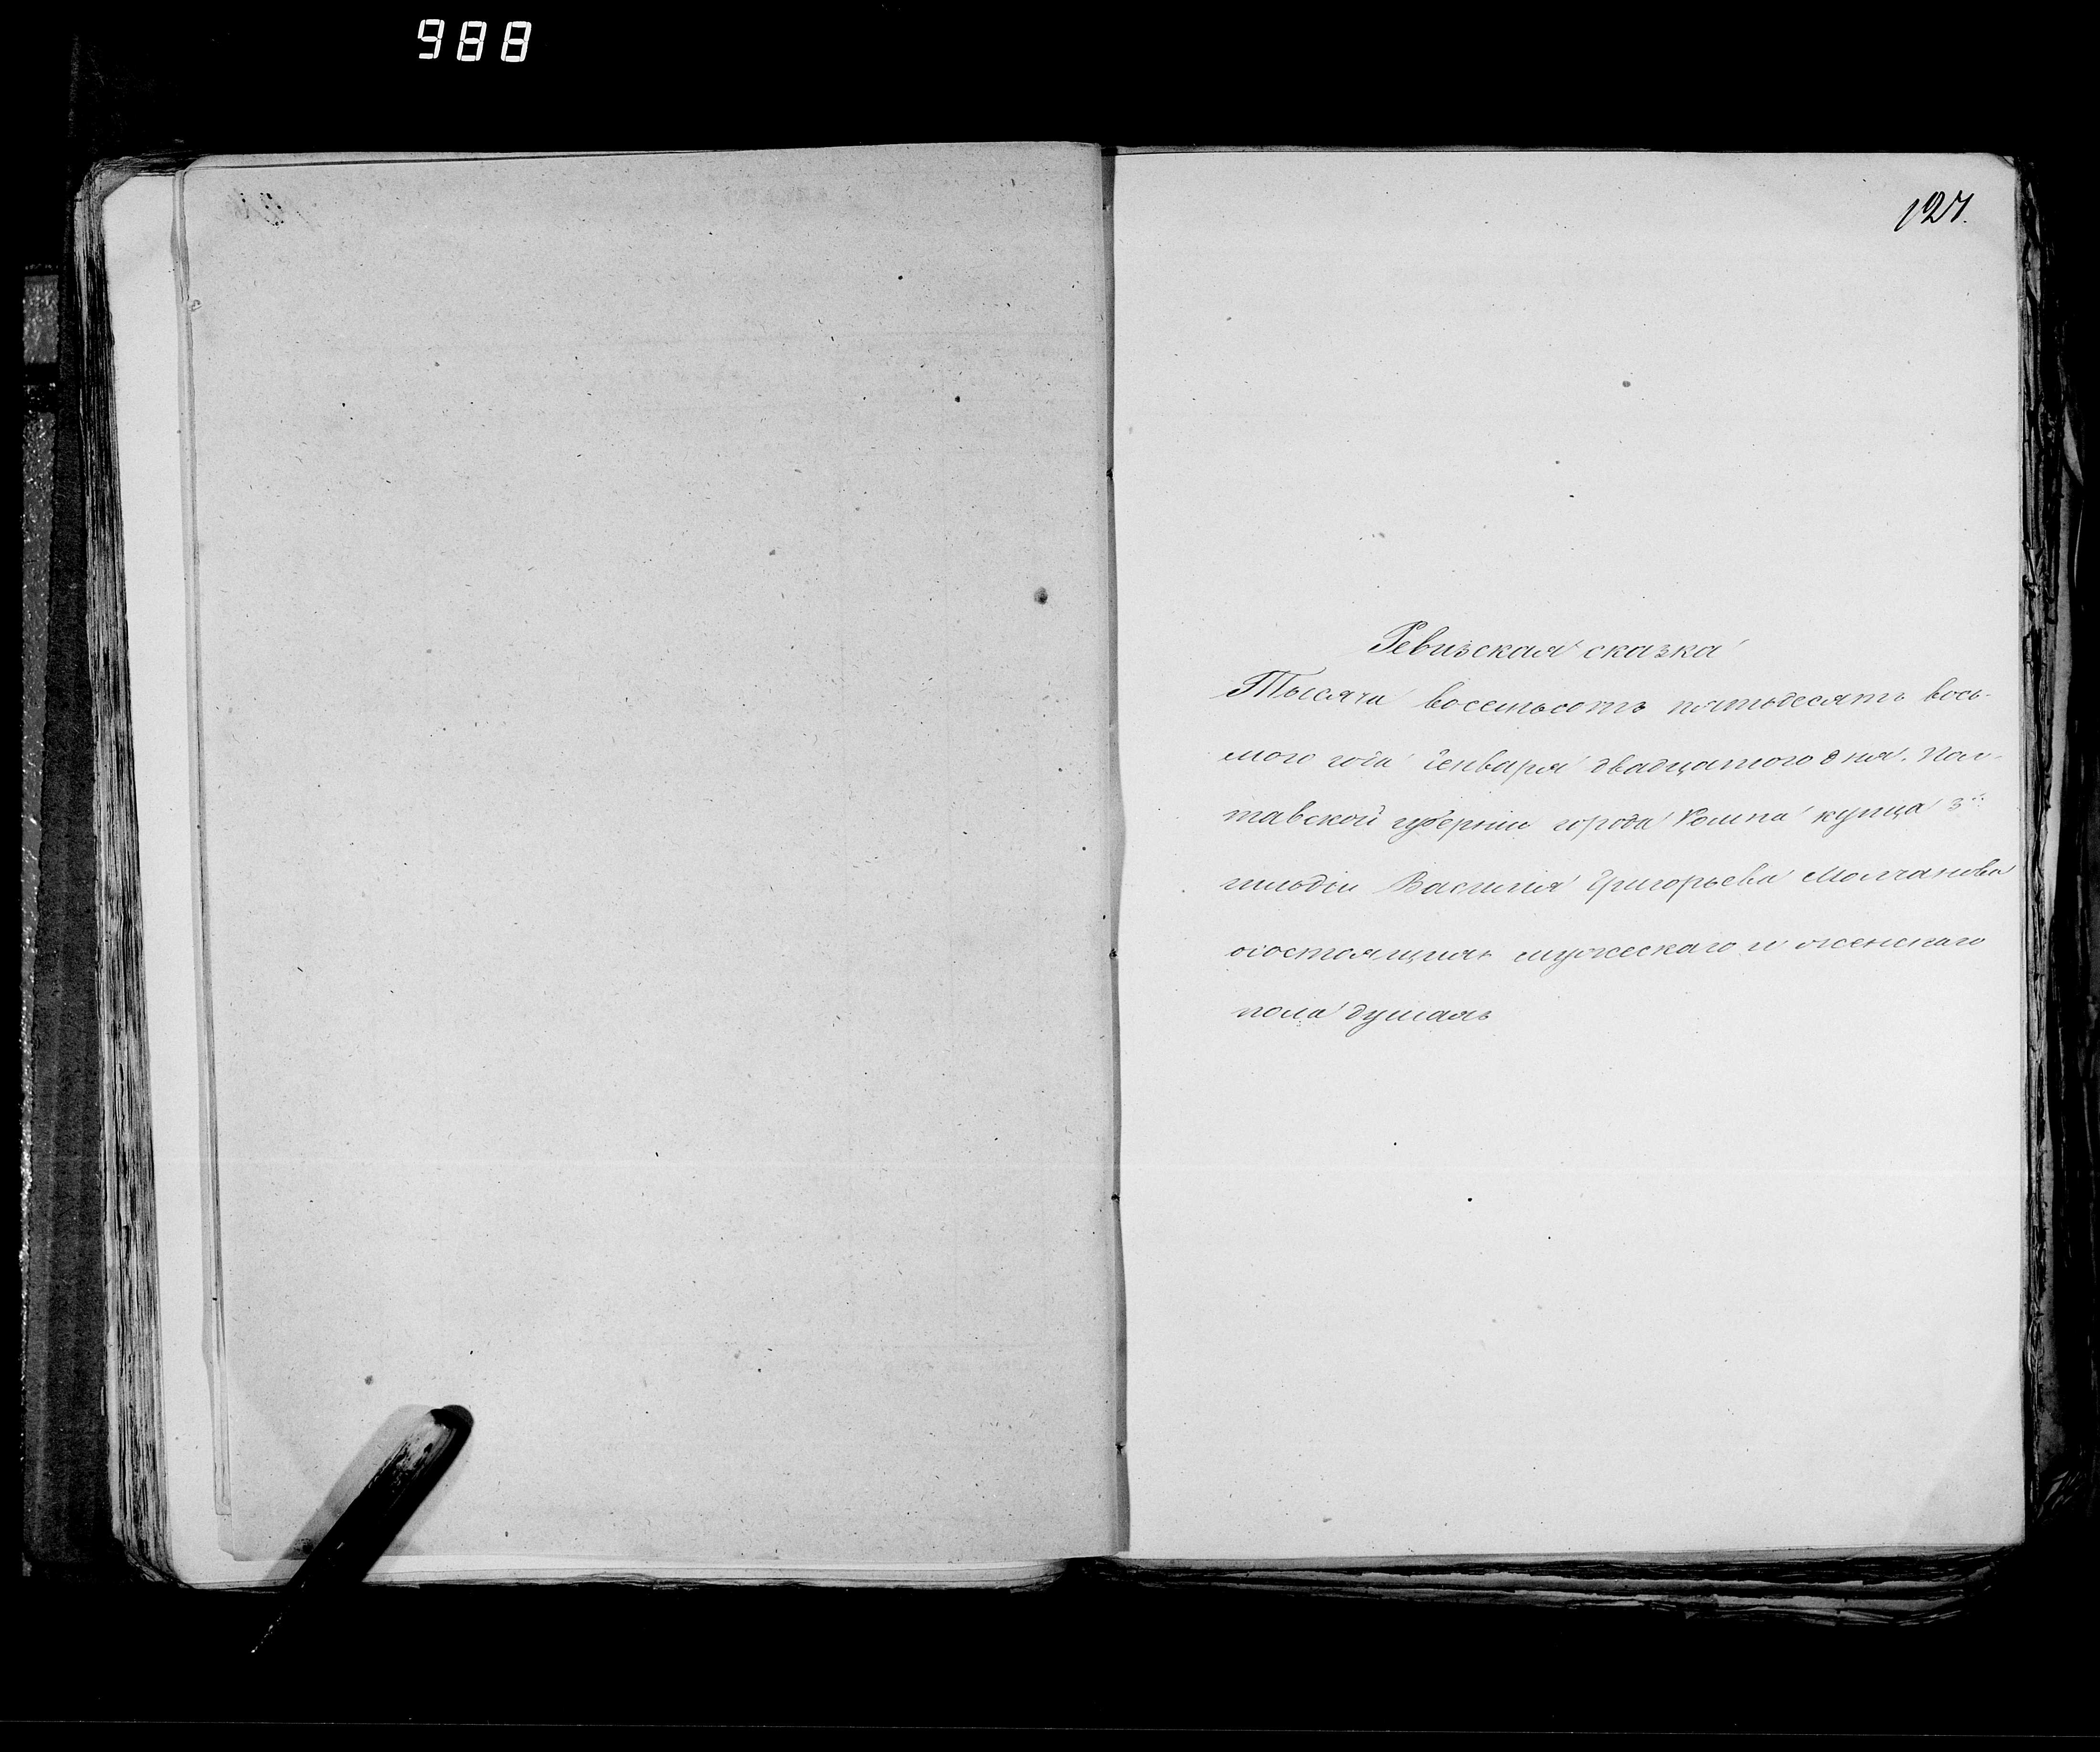 988
127.
Ревизская сказка
Тысяча восемьсотъ пятьдесятъ вось-
мого года Генваря двадцатого дня. Пол-
тавской губерніи города Ромна купца 3й
гильдіи Василія Григорьева Молчанова
о состоящихъ мужескаго и женскаго
пола душахъ